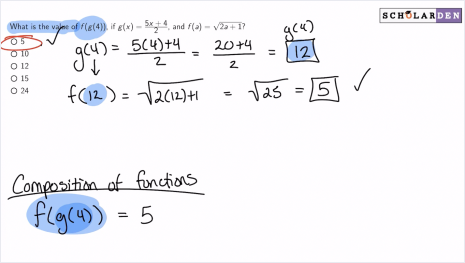 SCHOLARDEN
What is the value of f(g(4)), if g(x) = (5x+4)/2, and f(a) = √(2a+1)?
5
10
12
15
24
g(4) = (5(4)+4)/2 = (20+4)/2 = 12
g(4)
f(12) = √(2(12)+1) = √25 = 5
Composition of functions
f(g(4)) = 5